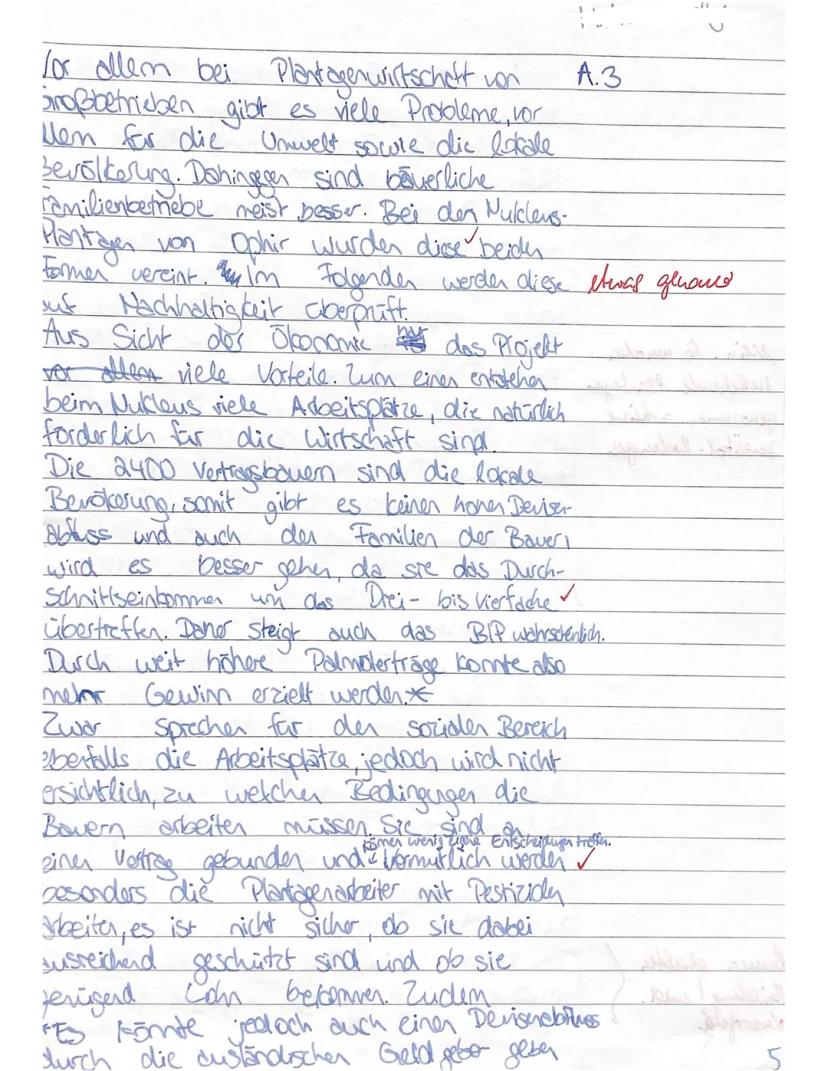 Vor allem bei Plantagenwirtschaft von A.3
Großbetrieben gibt es viele Probleme, vor
allem für die Umwelt sowie die lokale
Bevölkerung. Dahingegen sind bäuerliche
Familienbetriebe meist besser. Bei den Nukleus-
Plantagen von Ophir wurden diese beiden
Formen vereint. Im Folgenden werden diese etwas genauer
auf Nachhaltigkeit überprüft.
Aus Sicht der Ökonomie hat das Projekt
vor allem viele Vorteile. Zum einen entstehen
beim Nukleus viele Arbeitsplätze, die natürlich
förderlich für die Wirtschaft sind.
Die 2400 Vertragsbauern sind die lokale
Bevökerung, somit gibt es keinen hohen Devisen-
abfluss und auch den Familien der Bauern
wird es besser gehen, da sie das Durch-
schnittseinkommen um das Drei- bis Vierfache
übertreffen. Daher steigt auch das BIP wahrscheinlich.
Durch weit höhere Palmölerträge konnte also
mehr Gewinn erzielt werden.*
Zwar sprechen für den sozialen Bereich
ebenfalls die Arbeitsplätze, jedoch wird nicht
ersichtlich, zu welchen Bedingungen die
Bauern arbeiten müssen. Sie sind an
können wenig eigene Entscheidungen treffen.
einen Vertrag gebunden und Vermutlich werden
besonders die Plantagenarbeiter mit Pestiziden
arbeiten, es ist nicht sicher, ob sie dabei
ausreichend geschützt sind und ob sie
genügend Lohn bekommen. Zudem
*Es könnte jedoch auch einen Devisenabfluss
durch die ausländischen Geldgeber geben 5